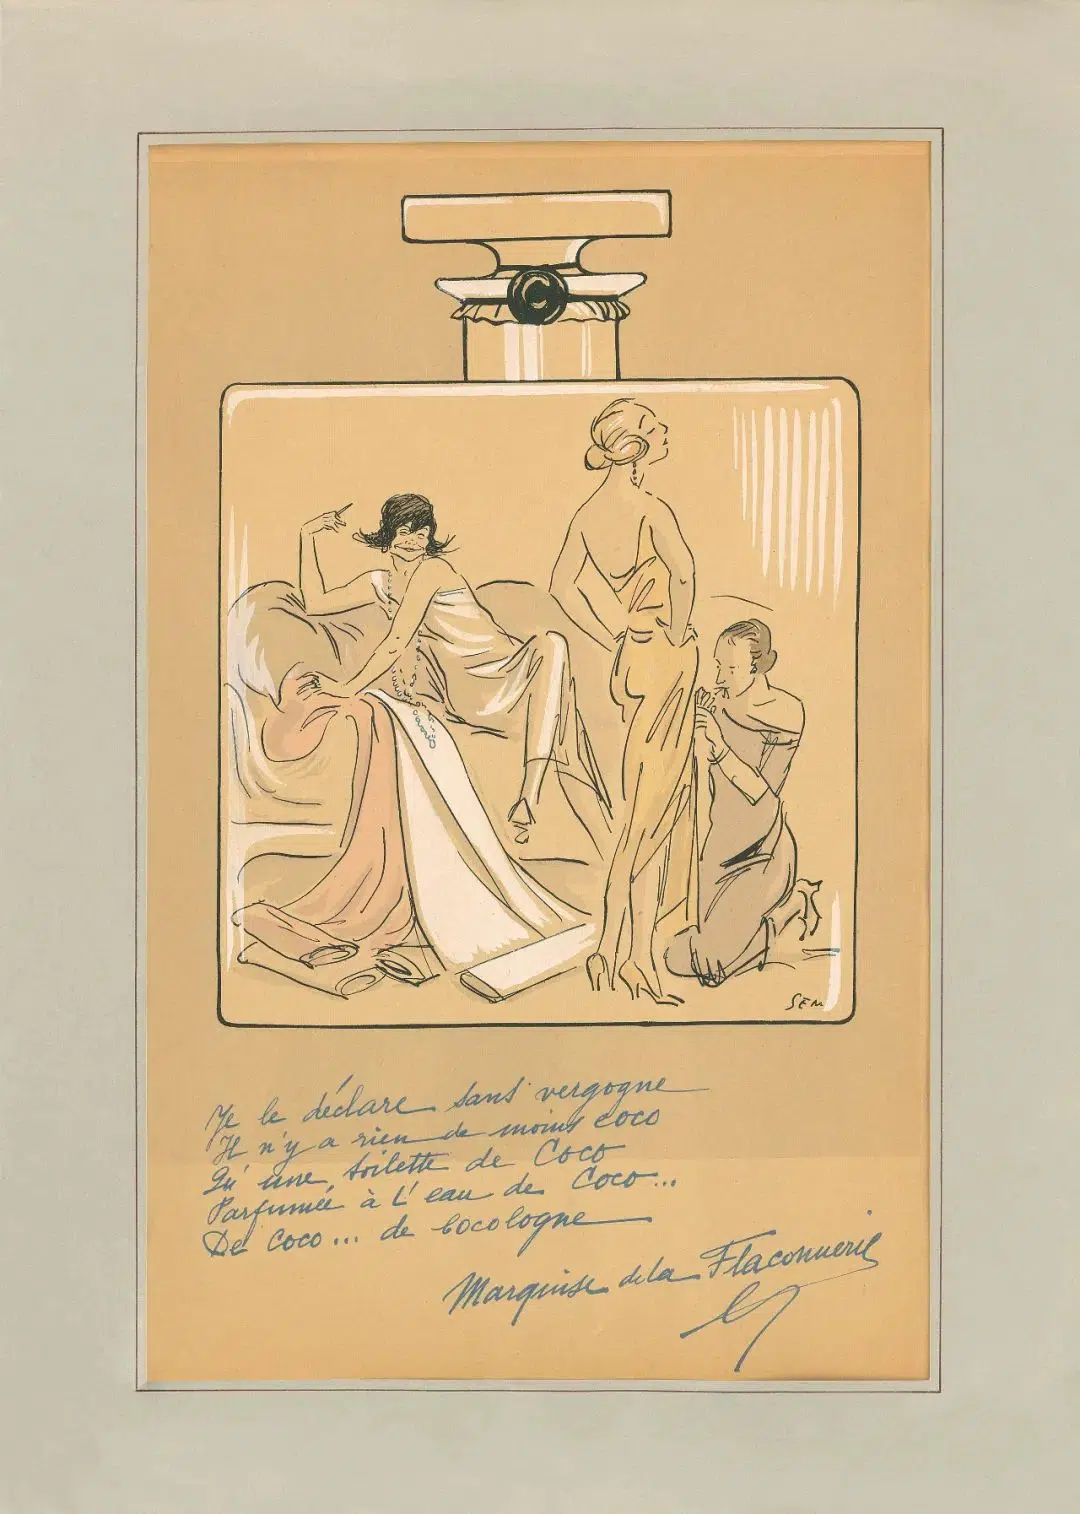 C
SEM
Je le déclare sans vergogne
Il n'y a rien de moins coco
Qu'une toilette de Coco
Parfumée à L'eau de Coco...
De Coco... de Cocologne
Marquise de la Flaconnerie